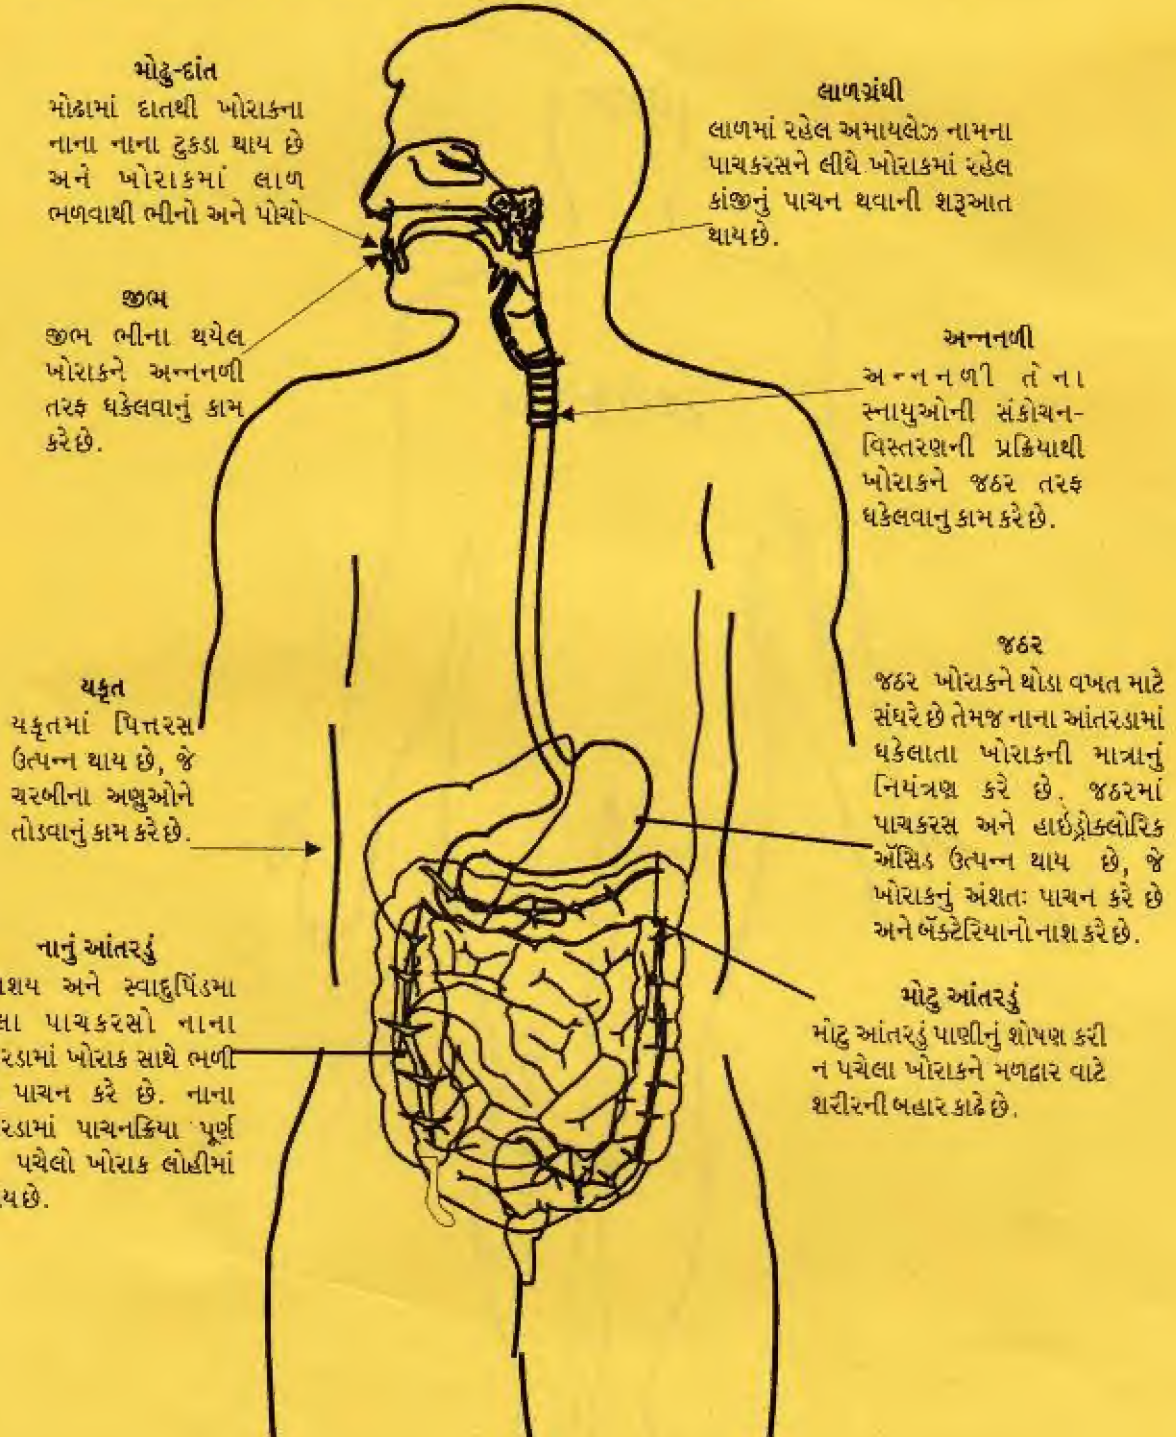 મોઢુ-દાંત
મોઢામાં દાતથી ખોરાકના
નાના નાના ટુકડા થાય છે
અને ખોરાકમાં લાળ
ભળવાથી ભીનો અને પોચો
જીભ
જીભ ભીના થયેલ
ખોરાકને અન્નનળી
તરફ ધકેલવાનું કામ
કરે છે.
યકૃત
યકૃતમાં પિત્તરસ
ઉત્પન્ન થાય છે, જે
ચરબીના અણુઓને
તોડવાનું કામ કરે છે.
નાનું આંતરડું
અને સ્વાદુપિંડમા
પાચકરસો નાના
ખોરાક સાથે ભળી
પાચન કરે છે. નાના
પાચનક્રિયા પૂર્ણ
પચેલો ખોરાક લોહીમાં
છે.
લાળગ્રંથી
લાળમાં રહેલ અમાયલેઝ નામના
પાચકરસને લીધે ખોરાકમાં રહેલ
કાંજીનું પાચન થવાની શરૂઆત
થાય છે.
અન્નનળી
અન્નનળી તેના
સ્નાયુઓની સંકોચન-
વિસ્તરણની પ્રક્રિયાથી
ખોરાકને જઠર તરફ
ધકેલવાનુ કામ કરે છે.
જઠર
જઠર ખોરાકને થોડા વખત માટે
સંઘરે છે તેમજ નાના આંતરડામાં
ધકેલાતા ખોરાકની માત્રાનું
નિયંત્રણ કરે છે. જઠરમાં
પાચકરસ અને હાઈડ્રોક્લોરિક
ઍસિડ ઉત્પન્ન થાય છે, જે
ખોરાકનું અંશતઃ પાચન કરે છે
અને બૅક્ટેરિયાનો નાશ કરે છે.
મોટુ આંતરડું
મોટુ આંતરડું પાણીનું શોષણ કરી
ન પચેલા ખોરાકને મળદ્વાર વાટે
શરીરની બહાર કાઢે છે.